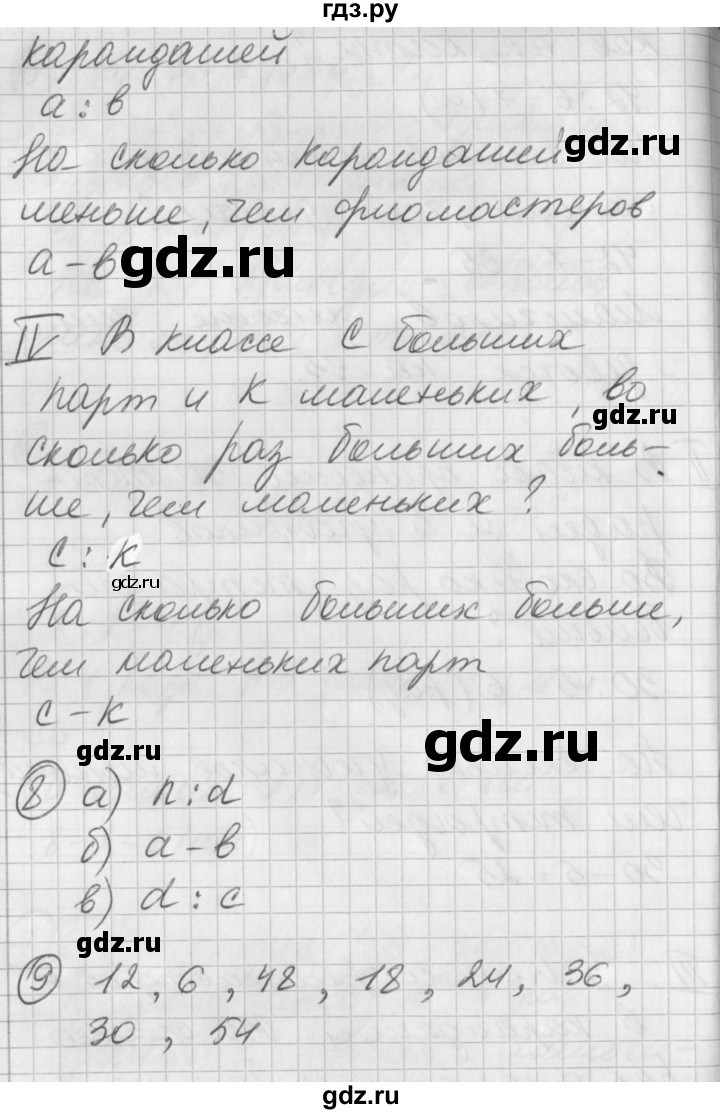 гдз.ру
карандашей
а : в
На сколько карандашей
gdz.ru
меньше, чем фломастеров
а – в
gdz.ru
IV В классе с больших
парт и к маленьких, во
gdz.ru
сколько раз больших боль-
ше, чем маленьких?
с : к
gdz.ru
На сколько больших больше,
чем маленьких парт
с – к
gdz.ru
gdz.ru
8 а) n : d
б) а – в
в) d : c
gdz.ru
9 12, 6, 48, 18, 24, 36,
30, 54
gdz.ru